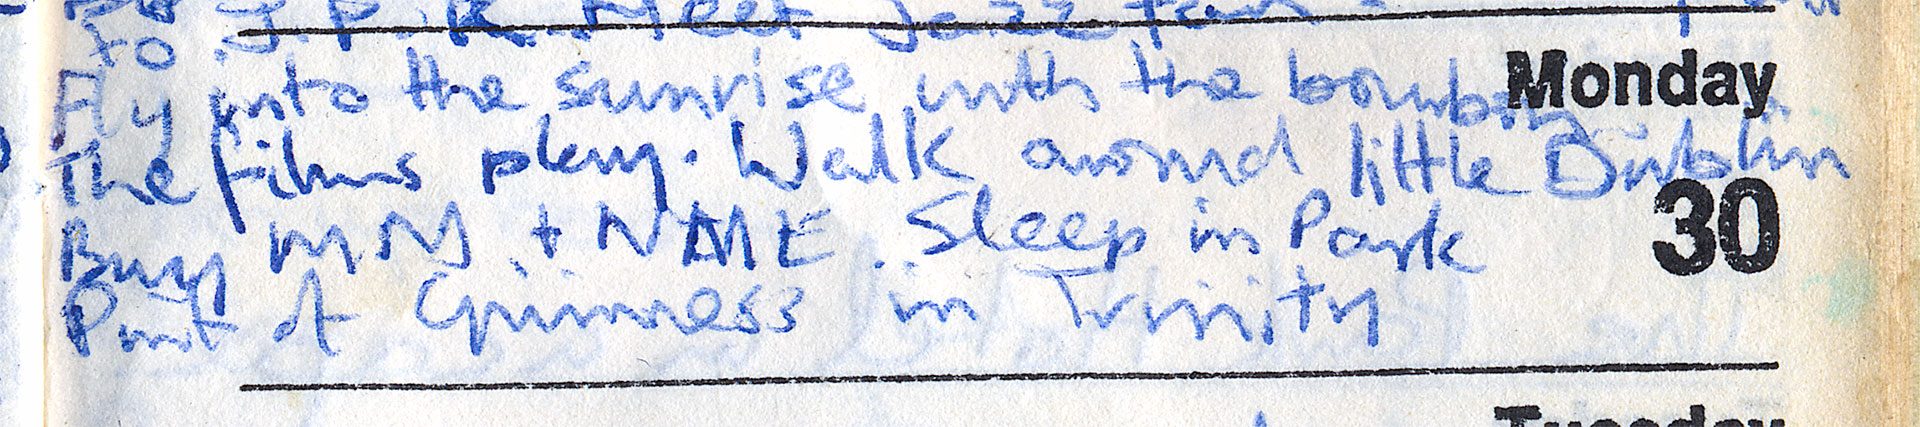 to J.P.R. Meet Jazz fan
Fly into the sunrise with the bombers
Monday
The films play. Walk around little Dublin
30
Buy MM + NME. Sleep in Park
Pint of Guinness in Trinity
Tuesday